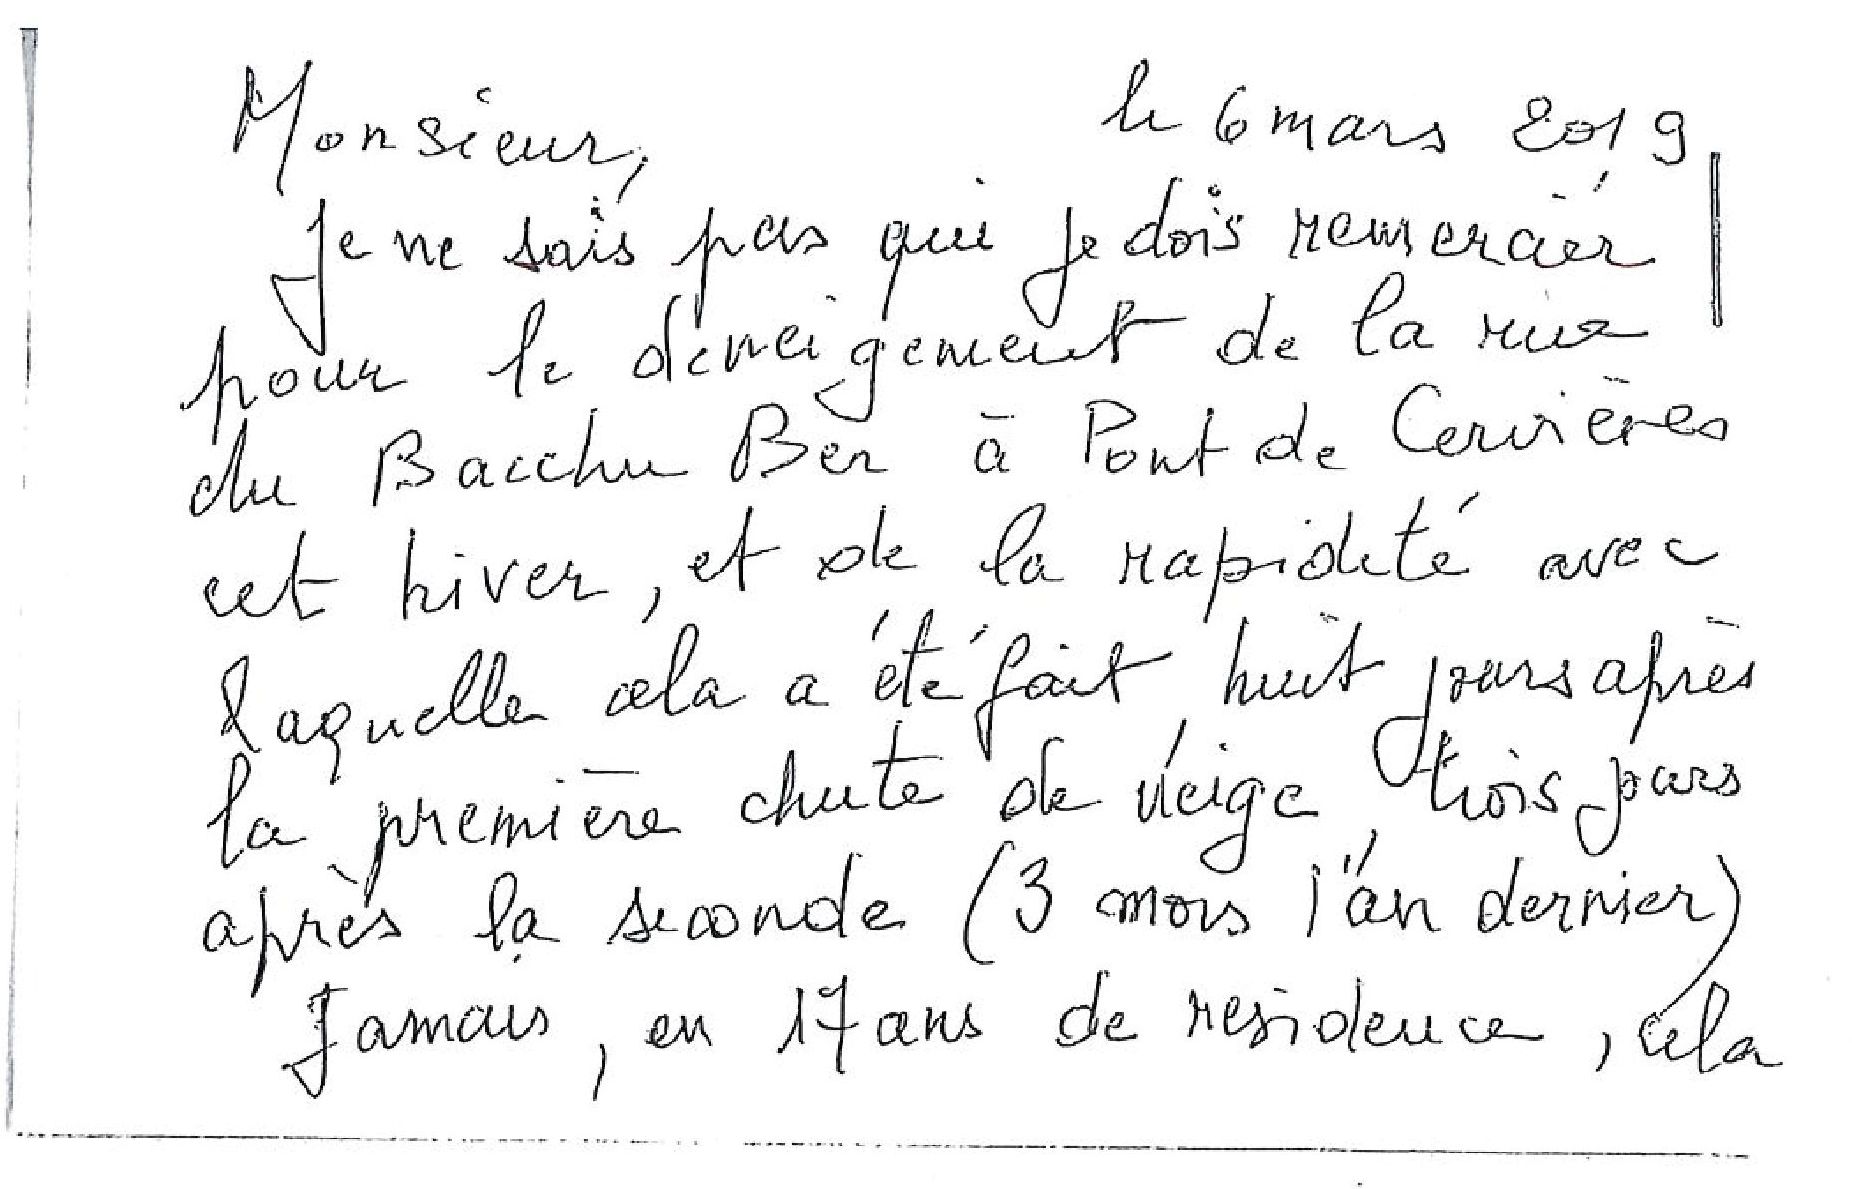 Monsieur, le 6 mars 2019
Je ne sais pas qui je dois remercier
pour le déneigement de la rue
du Bacchu Ber à Pont de Cervières
cet hiver, et de la rapidité avec
laquelle cela a été fait, huit jours après
la première chute de neige, trois jours
après la seconde (3 mois l'an dernier)
Jamais, en 17 ans de residence, cela